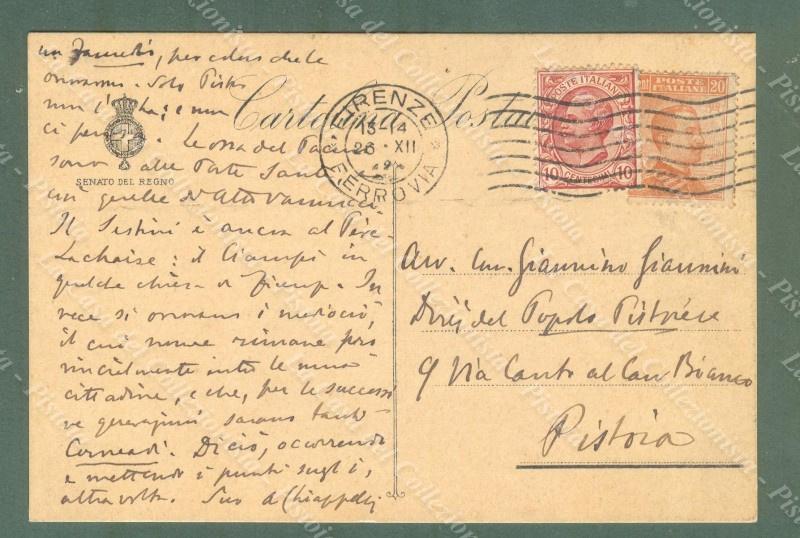 un Zanetti, per colera che le
onoriamo. Solo Pistoia
non l'ha; e non
ci pensa. Le ossa del Pacini
sono alle Porte Sante
in quelle d'Atto Vannucci.
Il Sestini è ancora al Père
Lachaise: il Ciampi in
qualche chiesa di Firenze. In
vece si onorano i mediocri,
il cui nome rimane pro
vincialmente entro le mura
cittadine, e che, per le successi
ve generazioni saranno tanti
Carneadi. Di ciò, occorrendo
e mettendo i punti sugli i,
altra volta. Suo A. Chiappelli
SENATO DEL REGNO
Cartolina Postale
FIRENZE
13-14
26 · XII
FERROVIA
POSTE ITALIANE
10 CENTESIMI 10
POSTE ITALIANE 20
Avv. Cav. Giannino Giannini
Dirett. del Popolo Pistoiese
9 Via Canto al Can Bianco
Pistoia